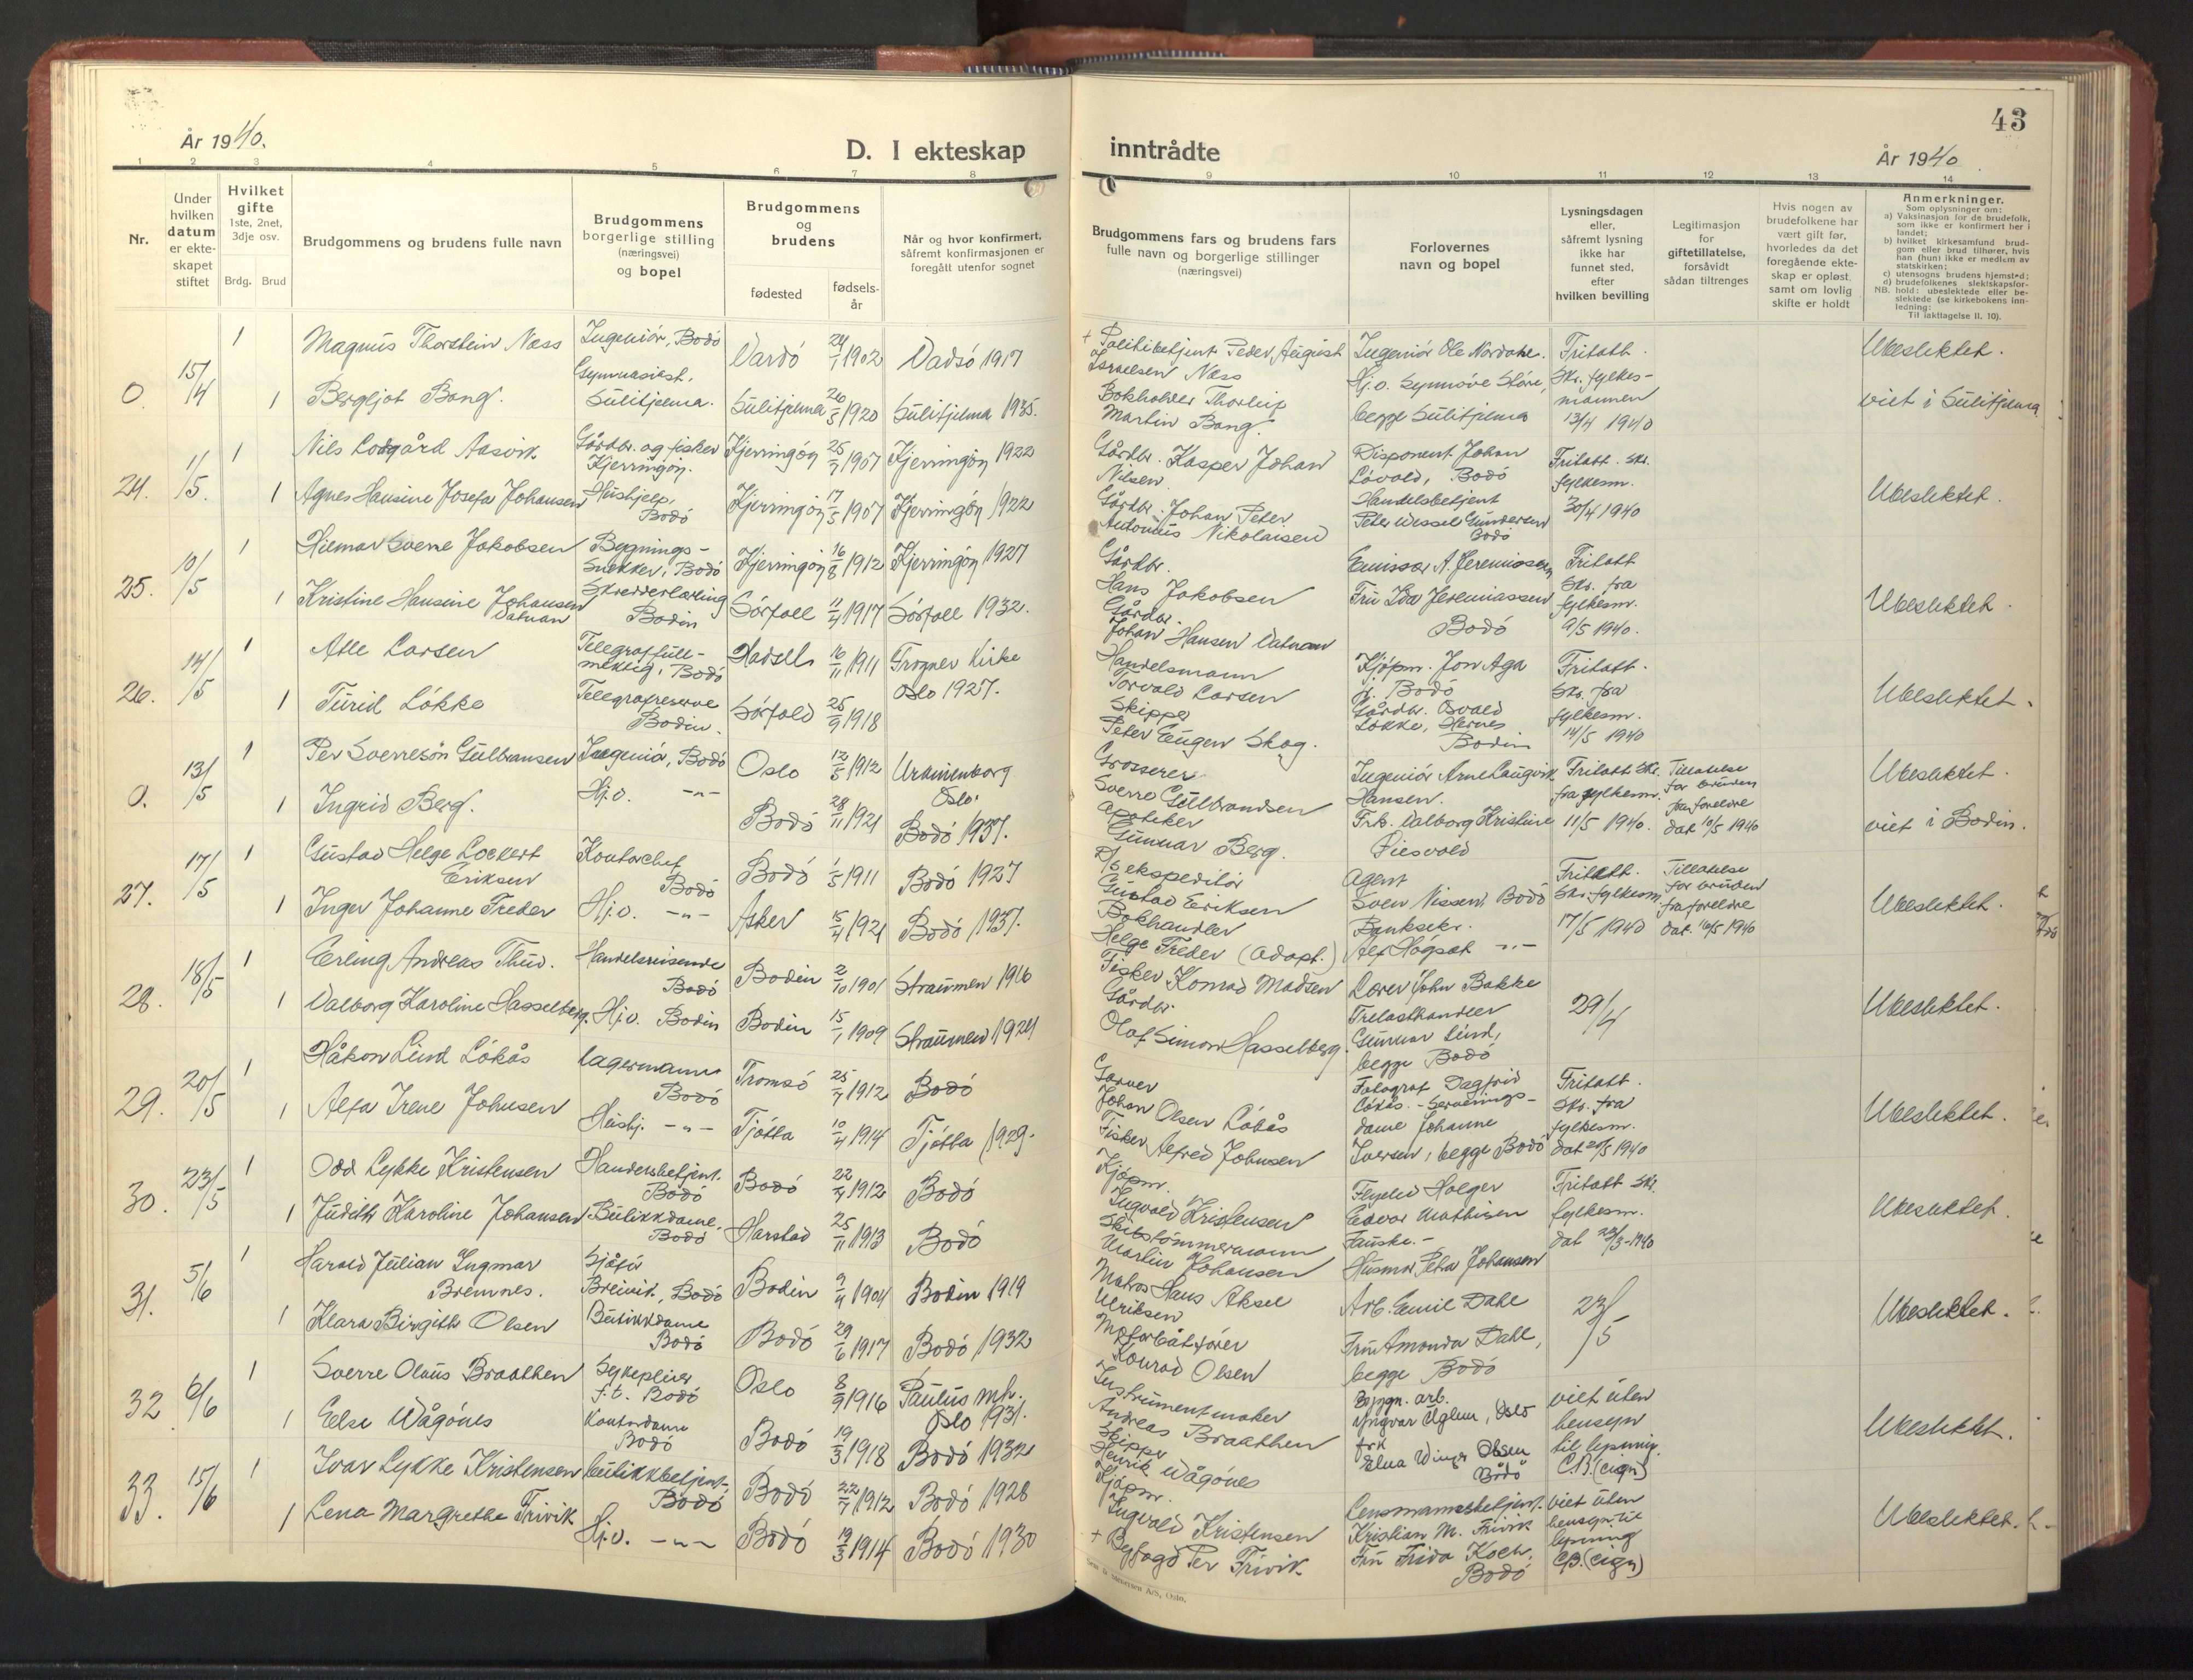 43
År 1940.
D. I ekteskap
inntrådte
År 1940
1 2 3 4 5 6 7 8 9 10 11 12 13 14
Nr.
Under
hvilken
datum
er ekte-
skapet
stiftet
Hvilket
gifte
1ste, 2net,
3dje osv.
Brdg. Brud
Brudgommens og brudens fulle navn
Brudgommens
borgerlige stilling
(næringsvei)
og bopel
Brudgommens
og
brudens
fødested
fødsels-
år
Når og hvor konfirmert,
såfremt konfirmasjonen er
foregått utenfor sognet
Brudgommens fars og brudens fars
fulle navn og borgerlige stillinger
(næringsvei)
Forlovernes
navn og bopel
Lysningsdagen
eller,
såfremt lysning
ikke har
funnet sted,
efter
hvilken bevilling
Legitimasjon
for
giftetillatelse,
forsåvidt
sådan tiltrenges
Hvis nogen av
brudefolkene har
vært gift før,
hvorledes da det
foregående ekte-
skap er opløst
samt om lovlig
skifte er holdt
Anmerkninger.
Som oplysninger om:
a) Vaksinasjon for de brudefolk,
som ikke er konfirmert her i
landet;
b) hvilket kirkesamfund brud-
gom eller brud tilhører, hvis
han (hun) ikke er medlem av
statskirken;
c) utensogns brudens hjemsted;
d) brudefolkenes slektskapsfor-
hold: ubeslektede eller be-
slektede (se kirkebokens inn-
ledning:
Til iakttagelse II. 10).
0. 15/4
1 Magnus Thorstein Næss
Ingeniør, Bodø
Vardø 24/1 1902 Vadsø 1917
+ Politibetjent Peder August
Israelsen Næss
Ingeniør Ole Nordahl.
Fritatt.
Ubeslektet.
1 Bergljot Bang.
Gymnasiast.
Sulitjelma.
Sulitjelma 26/5 1920 Sulitjelma 1935.
Bokholder Thorleif
Martin Bang.
Hj.v. Synnøve Støre
begge Sulitjelma
Skr. fylkes-
mannen
13/4 1940
viet i Sulitjelma
24. 11/5.
1 Nils Lodgård Aasvik
Gårdbr. og fisker
Kjerringøy.
Kjerringøy 25/7 1907 Kjerringøy 1922
Gårdbr. Kasper Johan
Nilsen
Disponent Johan
Løvold, Bodø
Fritatt. Skr.
fylkesm.
30/4 1940
Ubeslektet.
1 Agnes Hansine Josefa Johansen
Hushjelp,
Bodø
Kjerringøy 17/5 1907 Kjerringøy 1922
Gårdbr. Johan Peter
Antonius Nikolaisen
Handelsbetjent
Peter Wessel Gundersen
Bodø
25. 10/5
1 Hilmar Sverre Jakobsen
Bygnings-
snekker, Bodø
Kjerringøy 16/8 1912 Kjerringøy 1927
Gårdbr.
Hans Jakobsen
Emissær A. Jeremiassen
Fritatt
Skr. fra
fylkesm.
9/5 1940.
Ubeslektet.
1 Kristine Hansine Johansen
Vatnan
Skredderlærling
Bodin
Sørfoll 11/4 1917 Sørfoll 1932.
Gårdbr.
Johan Hansen Vatnan
Fru Ida Jeremiassen
Bodø
26. 14/5
1 Atle Larsen
Telegraffull-
mektig, Bodø
Hadsel 16/11 1911 Frogner Kirke
Oslo 1927.
Handelsmann
Torvald Larsen
Kjøpm. Jon Aga
jr. Bodø
Fritatt.
Skr. fra
fylkesm.
14/5 1940
Ubeslektet.
1 Turid Løkke
Telegrafreserve
Bodin.
Sørfold 25/9 1918
Skipper
Peter Eugen Skog.
Gårdbr. Osvald
Løkke, Hernes
Bodin
0. 13/5
1 Per Sverresøn Gulbransen
Ingeniør, Bodø
Oslo 12/5 1912 Uranienborg
Oslo.
Grosserer
Sverre Gulbrandsen
Ingeniør Arne Langvik
Hansen.
Fritatt Skr.
fra fylkesm.
11/5 1940.
Tillatelse
for bruden
fra foreldre
dat 10/5 1940
Ubeslektet.
1 Ingrid Berg.
Hj.v. -"-
Bodø 28/11 1921 Bodø 1937.
Apoteker
Gunnar Berg.
Frk. Valborg Kristine
viet i Bodin.
27. 17/5
1 Gustav Helge Lockert
Eriksen
Kontorchef
Bodø
Bodø 1/5 1911 Bodø 1927
D/S ekspeditør
Gustav Eriksen
Agent
Sven Nissen, Bodø
Fritatt.
Skr. fylkesm.
17/5 1940
Tillatelse
for bruden
fra foreldre
dat. 16/5 1940
Ubeslektet.
1 Inger Johanne Treder
Hj.v. -"-
Asker 15/4 1921 Bodø 1937.
Bokhandler
Helge Treder (Adopt.)
Banksekr.
Alf Høgset -"-
28. 18/5
1 Erling Andreas Thuv.
Handelsreisende
Bodø
Bodin 2/10 1901 Straumen 1916
Fisker Konrad Madsen
Lærer John Bakke
29/4
Ubeslektet.
1 Valborg Karoline Hasselberg.
Hj.v. Bodin
Bodin 15/1 1909 Straumen 1924
Gårdbr.
Olaf Simon Hasselberg.
Trelasthandler
Gunnar Lind,
begge Bodø
29. 20/5
1 Håkon Lind Løkås
Lagermann
Bodø
Tromsø 25/7 1912 Bodø
Garver
Johan Olsen Løkås
Fotograf Dagfrid
Løkås. - Serverings-
dame Johanne
Iversen, begge Bodø
Fritatt.
Skr. fra
fylkesm.
dat 20/5 1940
Ubeslektet.
1 Alfa Irene Johnsen
Hushj. -"-
Tjøtta 10/4 1914 Tjøtta 1929.
Fisker Alfred Johnsen
30. 23/5
1 Odd Lykke Kristensen
Handelsbetjent.
Bodø
Bodø 22/7 1912 Bodø
Kjøpm.
Ingvald Kristensen
Holger
Edvar Mathisen
Fauske. -
Fritatt Skr.
fylkesm.
dat 28/3-1940
Ubeslektet.
1 Judith Karoline Johansen
Butikkdame.
Bodø
Harstad 25/11 1913 Bodø
Skibstømmermann
Martin Johansen
Husmor Petra Johansen
31. 5/6
1 Harald Julian Ingmar
Bremnes.
Sjåfør
Breivik, Bodø
Bodin 9/4 1904 Bodin 1919
Matros Hans Aksel
Ulriksen
Arb. Emil Dahl
23/5
Ubeslektet.
1 Klara Birgith Olsen
Butikkdame
Bodø
Bodø 29/6 1917 Bodø 1932
Motorbåtfører
Konrad Olsen
Fru Amanda Dahl,
begge Bodø
32 6/6
1 Sverre Olaus Braathen
Sykepleier
f.t. Bodø
Oslo 8/9 1916 Paulus mh.
Oslo 1931.
Instrumentmaker
Andreas Braathen
Bygn. arb.
Yngvar Uglum, Oslo
viet uten
hensyn
til lysning.
C.B. (sign)
Ubeslektet.
1 Else Wågønes
Kontordame
Bodø
Bodø 19/3 1918 Bodø 1932
Skipper
Henrik Wågønes
frk
Elna Winge Olsen
Bodø
33. 15/6
1 Ivar Lykke Kristensen
Butikkbetjent,
Bodø
Bodø 22/7 1912 Bodø 1928
Kjøpm.
Ingvald Kristensen
Lensmannsbetjent.
Kristian M. Trivik
viet uten
hensyn til
lysning
C.B. (sign)
Ubeslektet.
1 Lena Margrethe Trivik
Hj.v. -"-
Bodø 19/3 1914 Bodø 1930
+ Byfogd Per Trivik
Fru Frida Koch.
Bodø